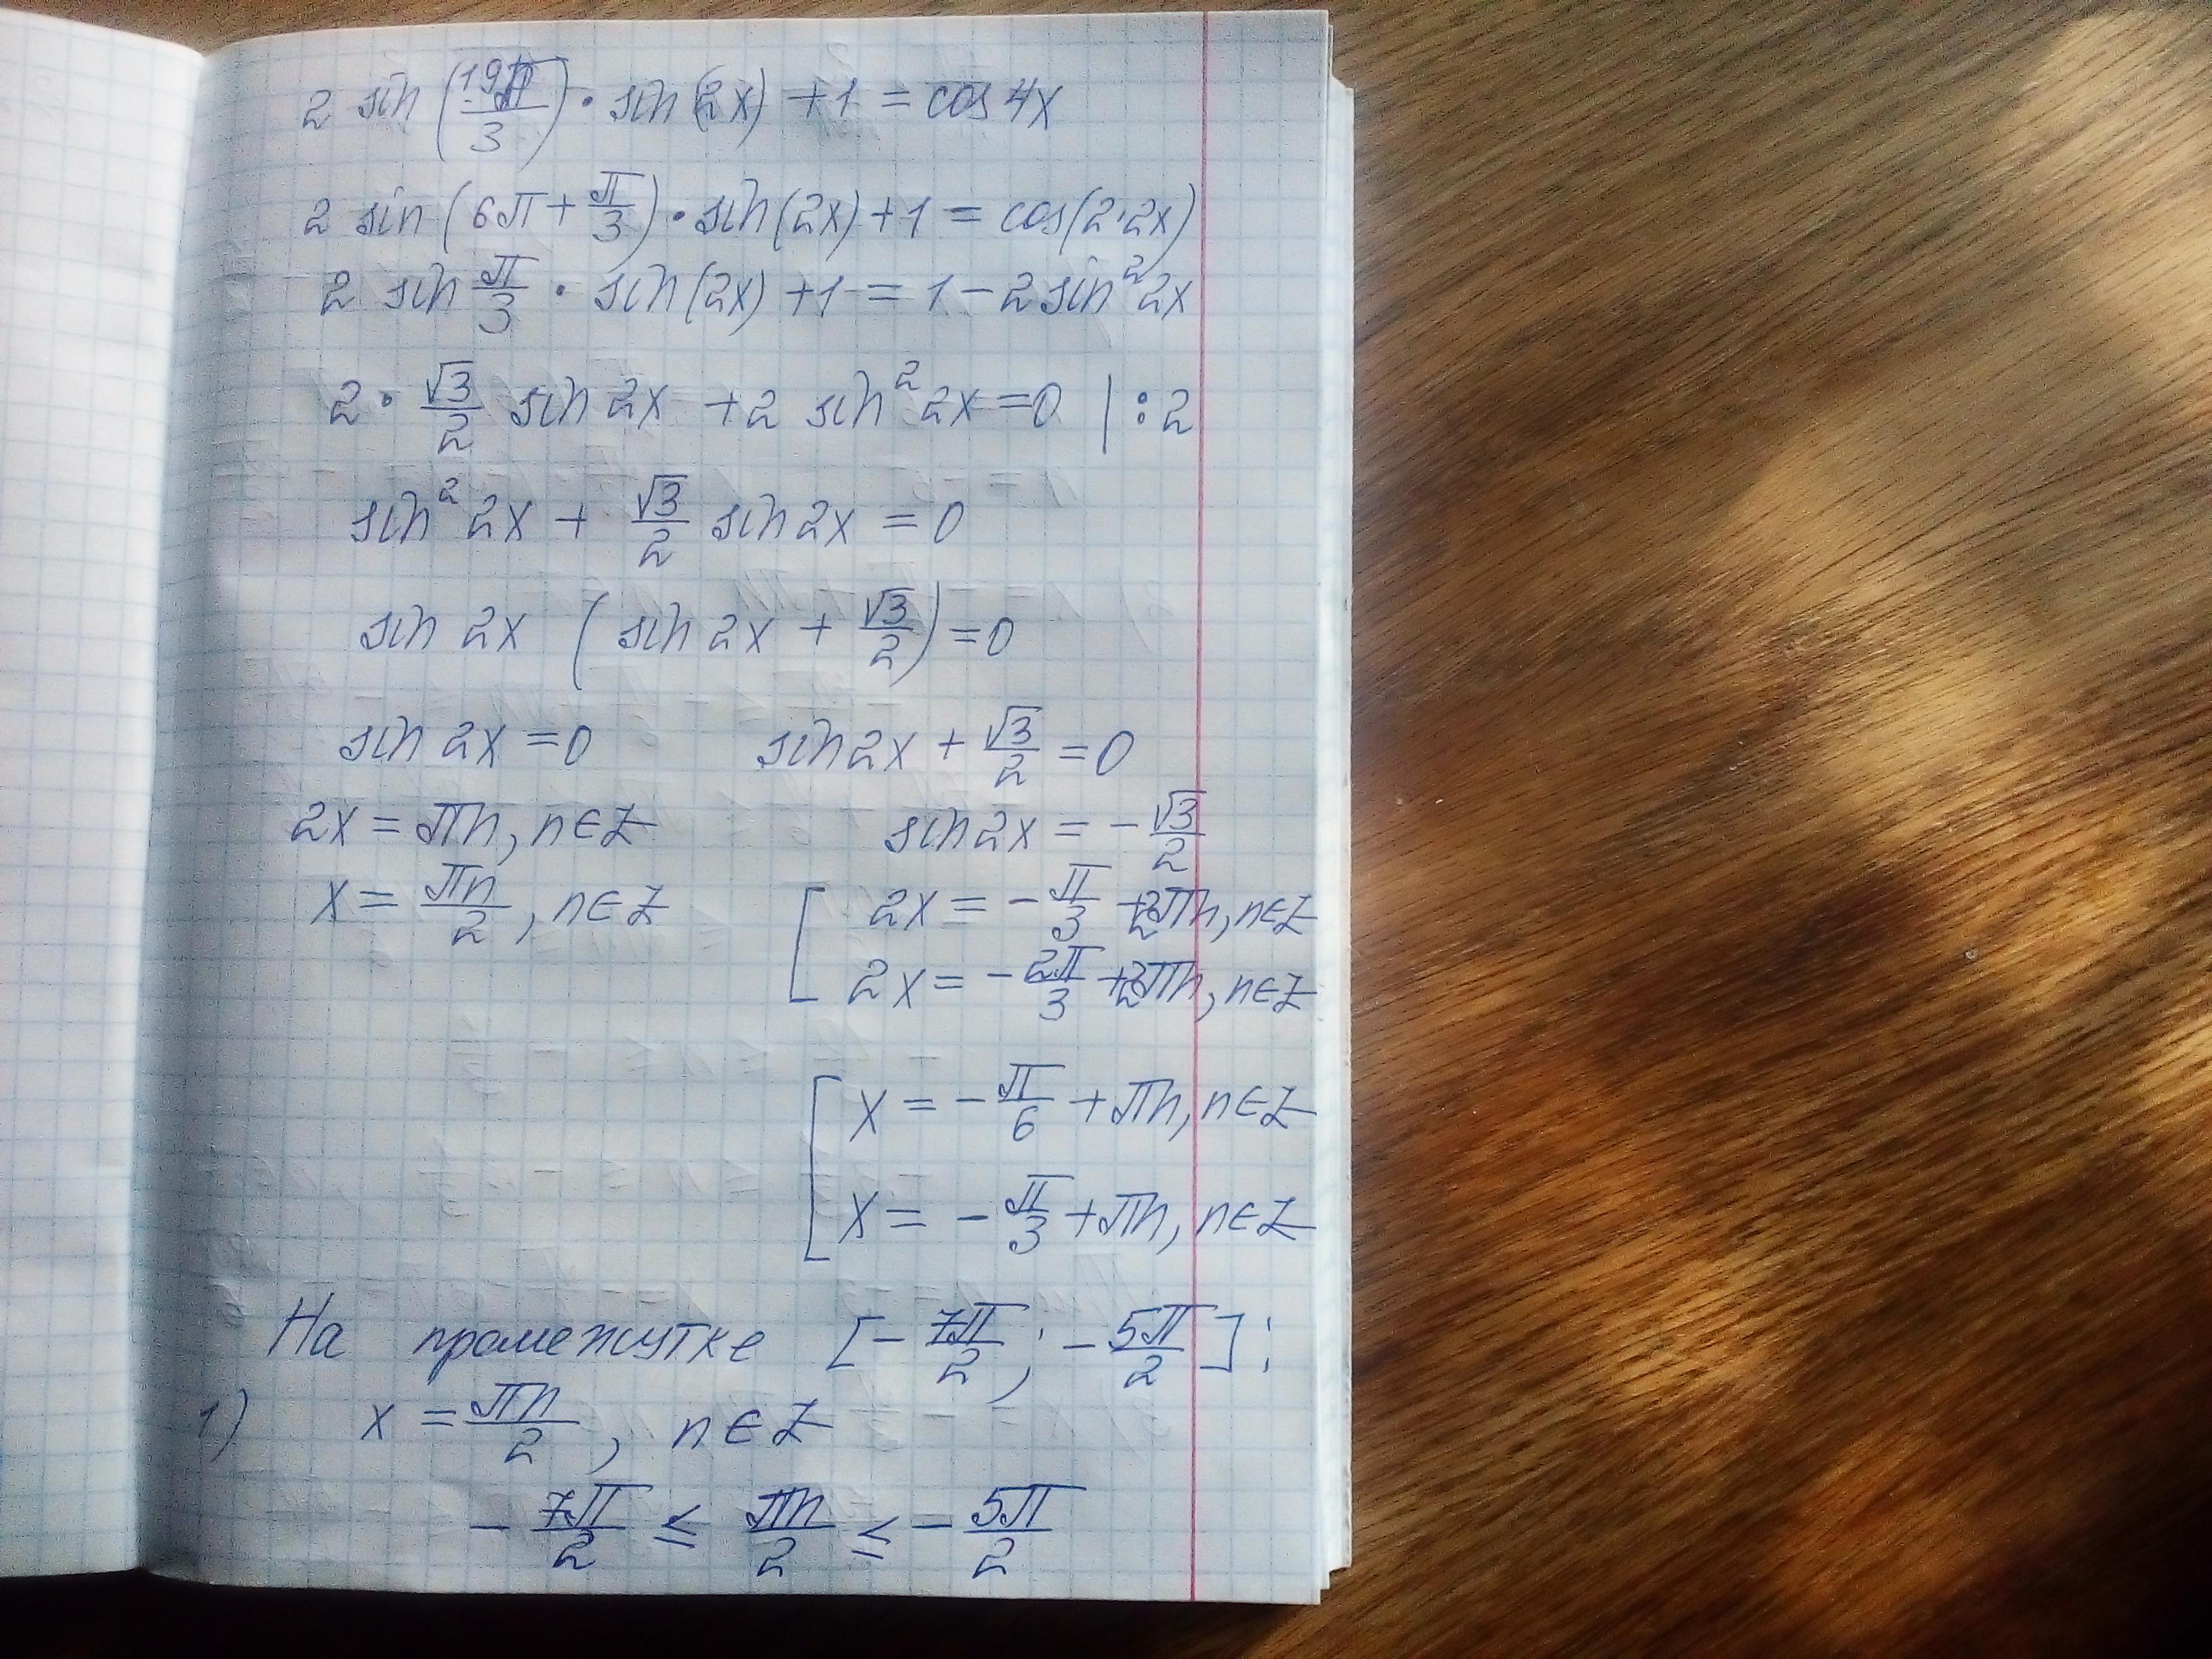 2 sin(19π/3) · sin(2x) + 1 = cos 4x
2 sin(6π + π/3) · sin(2x) + 1 = cos(2·2x)
2 sin π/3 · sin(2x) + 1 = 1 - 2 sin² 2x
2 · √3/2 sin 2x + 2 sin² 2x = 0 | : 2
sin² 2x + √3/2 sin 2x = 0
sin 2x (sin 2x + √3/2) = 0
sin 2x = 0 sin 2x + √3/2 = 0
2x = πn, n ∈ Z sin 2x = - √3/2
x = πn/2, n ∈ Z [ 2x = - π/3 + 2πn, n ∈ Z
2x = - 2π/3 + 2πn, n ∈ Z
[ x = - π/6 + πn, n ∈ Z
x = - π/3 + πn, n ∈ Z
На промежутке [- 7π/2 ; - 5π/2] :
1) x = πn/2, n ∈ Z
- 7π/2 ≤ πn/2 ≤ - 5π/2